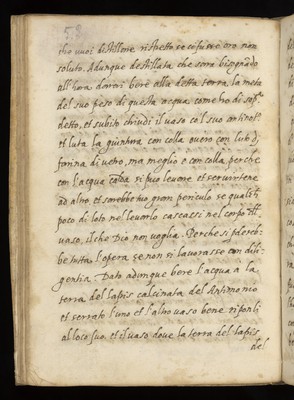 58
tuo vuoi distillone ristretto se ci fusse oro non
soluto. Adunque destillata che sara bisognādo
all'hora darai bere alla detta terra, la metà
del suo peso di questa acqua come ho di sop.ᵃ
detto, et subito chiudi il vaso col suo antinotº
et luta la giuntura con colla overo con luto d
farina di vetro, ma meglio è con colla, perche
con l'acqua calda si può levare et servirtene
ad altro, et sarebbe tuo gran periculo se qualch
poco di loto nel levarlo cascasse nel corpo dl
vaso, il che Dio non voglia. Perche si
be tutta l'opera, se non si lavorasse con dili-
gentia. Dato adunque bere l'acqua a la
terra del lapis calcinata del Antimonio
et serrato l'uno et l'altro vaso bene riponli
al loco suo, et il vaso dove la terra del lapis
del